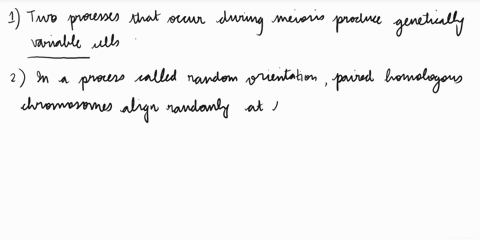 1) Two processes that occur during meiosis produce genetically
variable cells
2) In a process called random orientation, paired homologous
chromosomes align randomly at